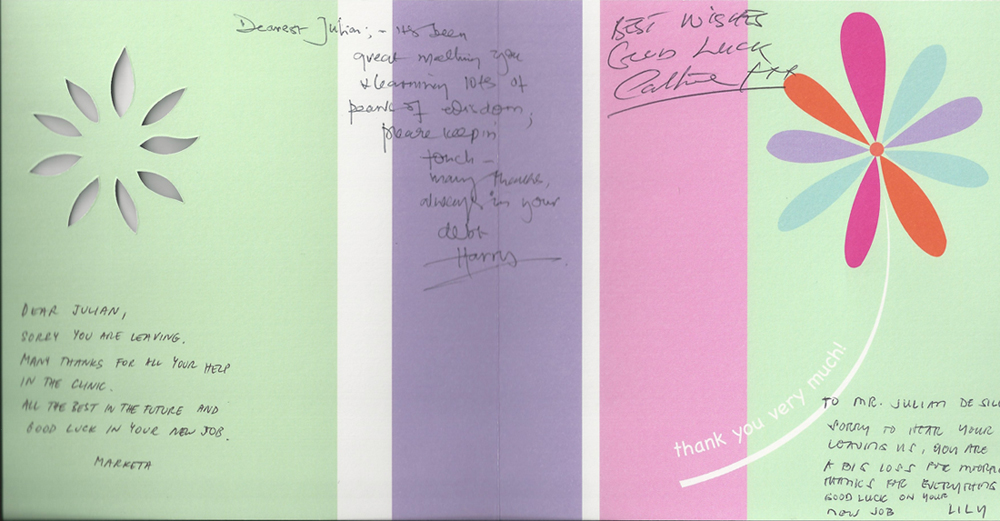 Dearest Julian, - its been
great meeting you
& learning lots of
pearls of wisdom,
please keep in
touch -
many thanks,
always in your
debt
Harris
BEST WISHES
GOOD LUCK
DEAR JULIAN,
SORRY YOU ARE LEAVING.
MANY THANKS FOR ALL YOUR HELP
IN THE CLINIC.
ALL THE BEST IN THE FUTURE AND
GOOD LUCK IN YOUR NEW JOB.
MARKETA
thank you very much!
TO MR. JULIAN DE SIL
SORRY TO HEAR YOUR
LEAVING US, YOU ARE
A BIG LOSS FOR
THANKS FOR EVERYTHING
GOOD LUCK ON YOUR
NEW JOB LILY